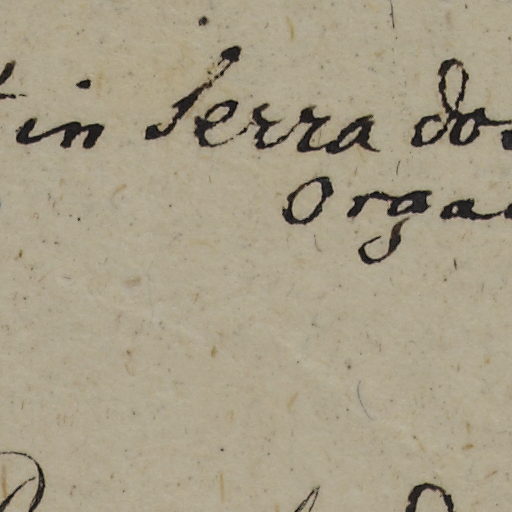 in Serra do
Orga